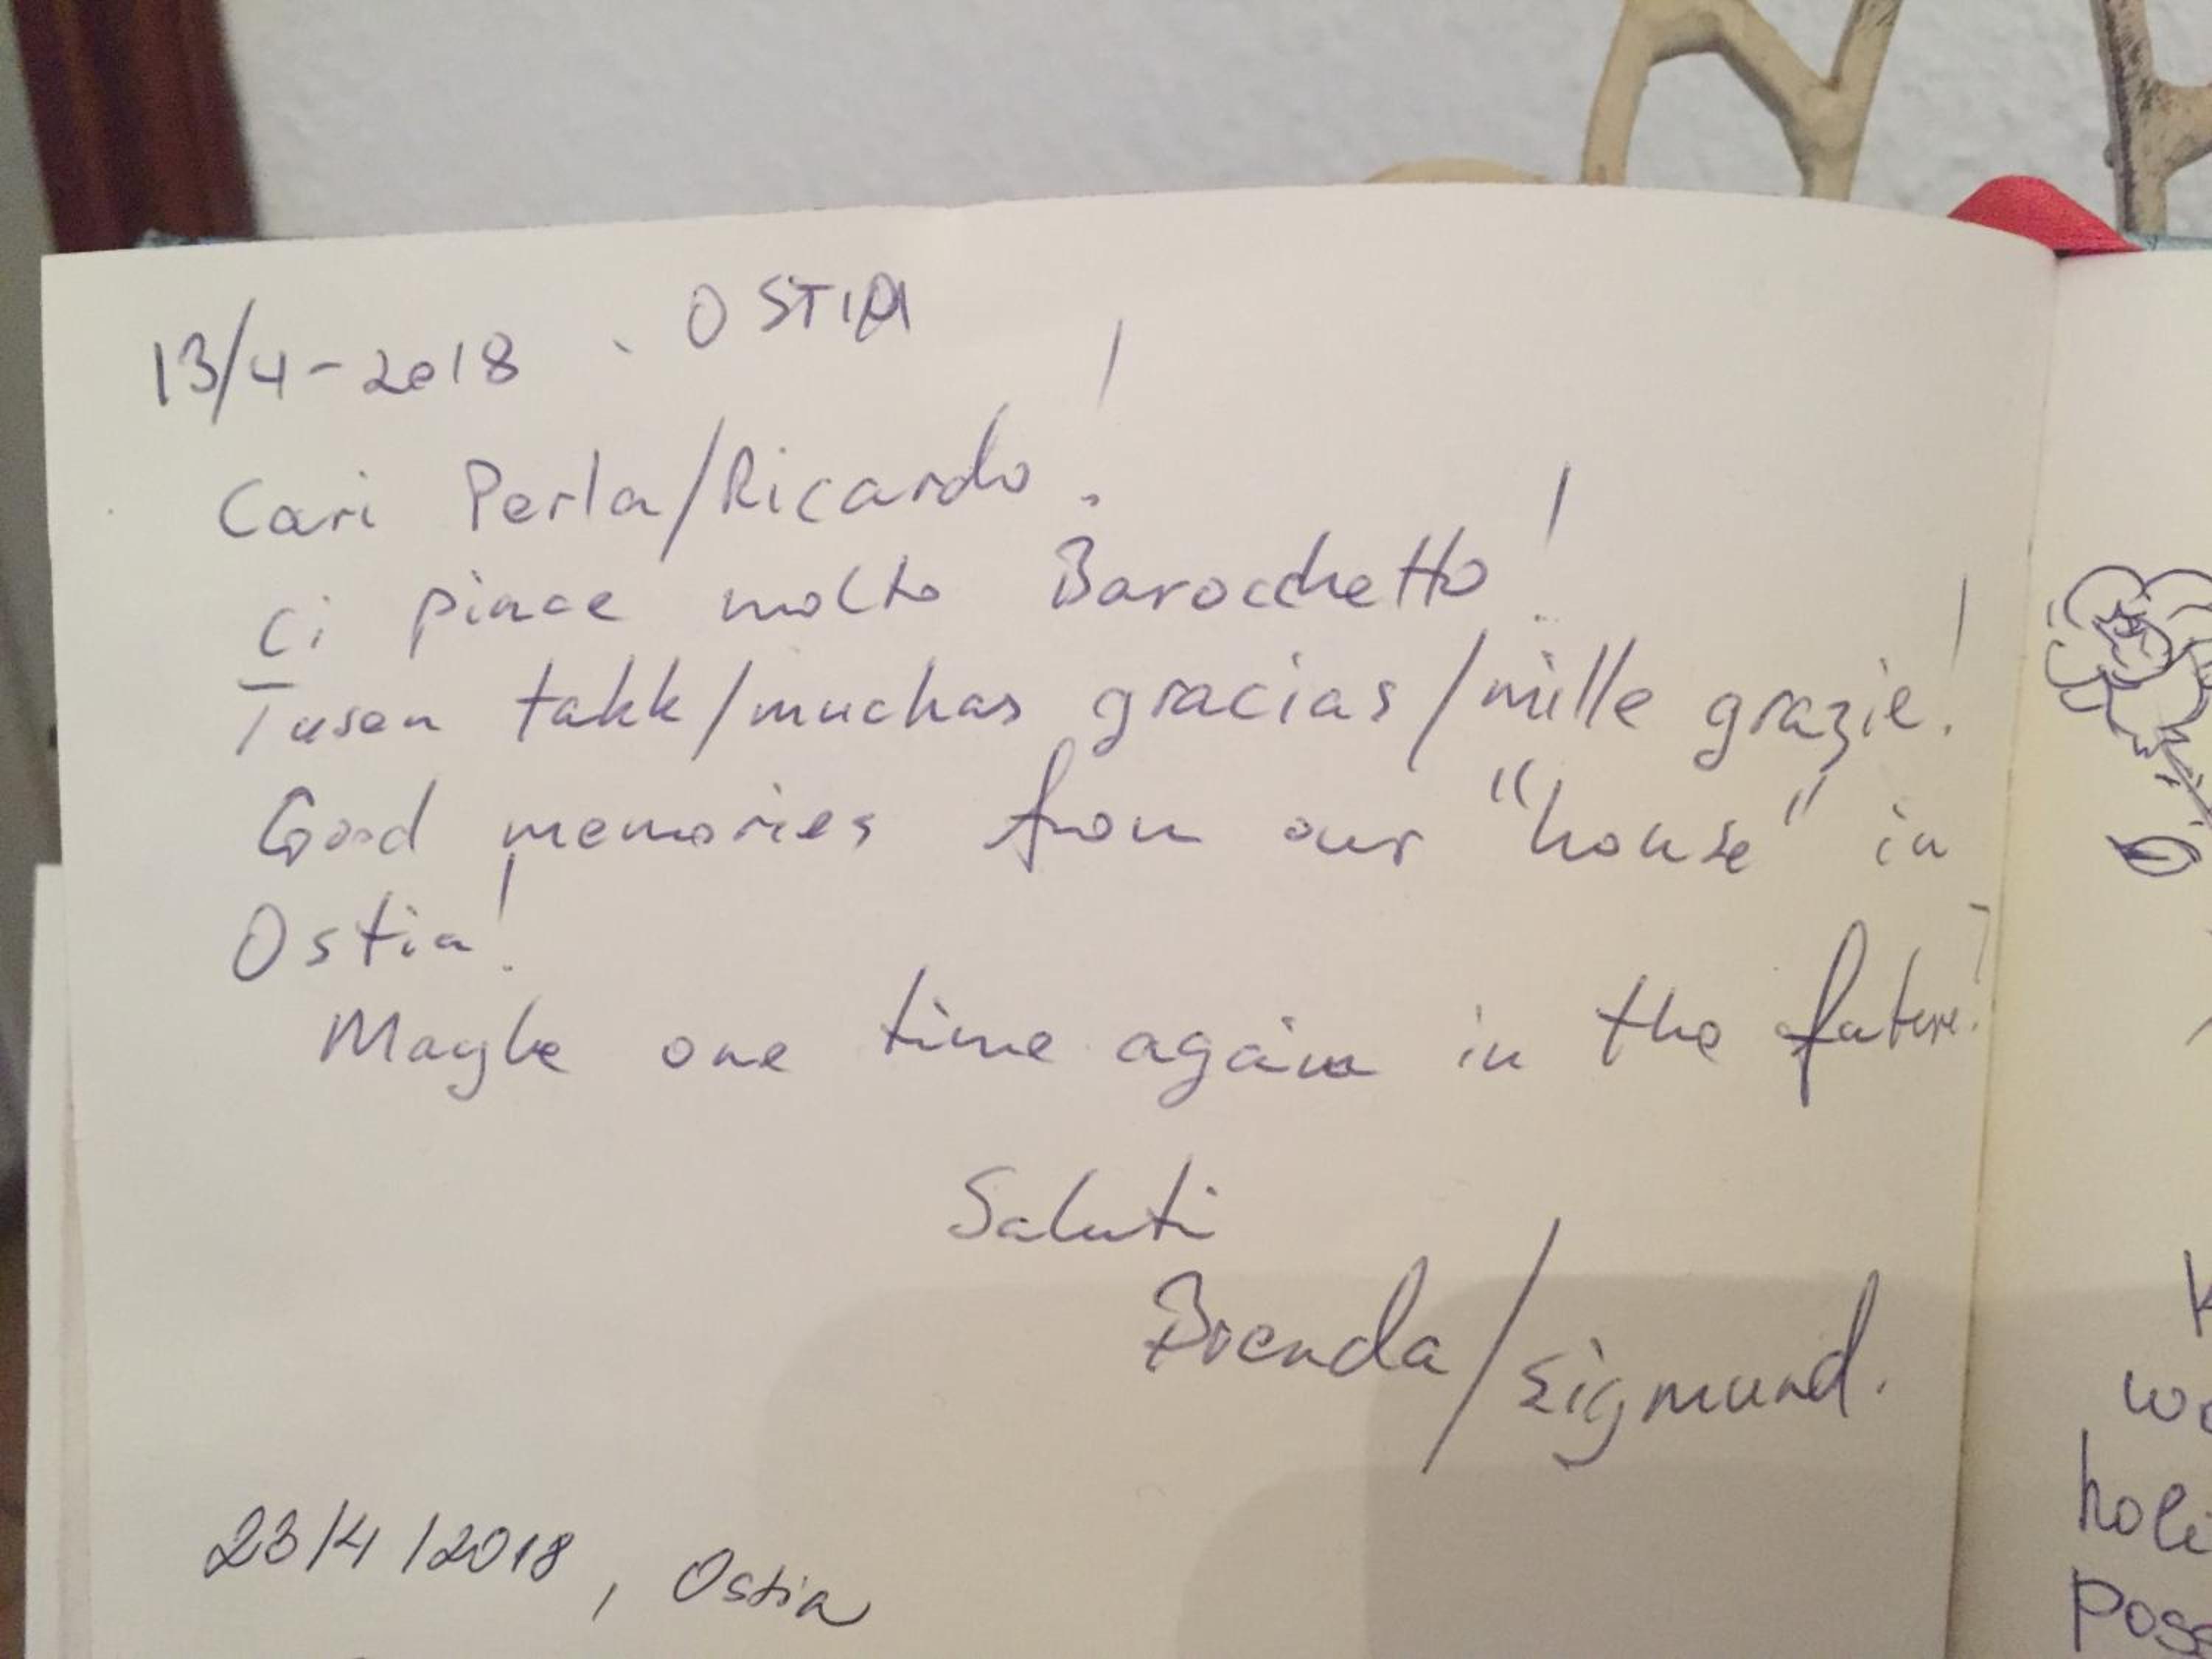 13/4-2018 . OSTIA
Cari Perla/Ricardo!
Ci piace molto Barocchetto!
Tusen takk/muchas gracias/mille grazie!
Good memories from our "house" in
Ostia!
Maybe one time again in the future!
Saluti
Brenda/Sigmund.
23/4/2018, Ostia
holi
Poss